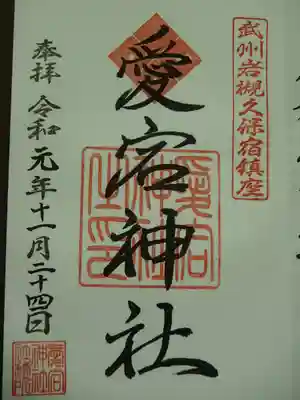 武州岩槻久保宿鎮座
愛宕神社
奉拝 令和元年十一月二十四日
愛宕神社之印